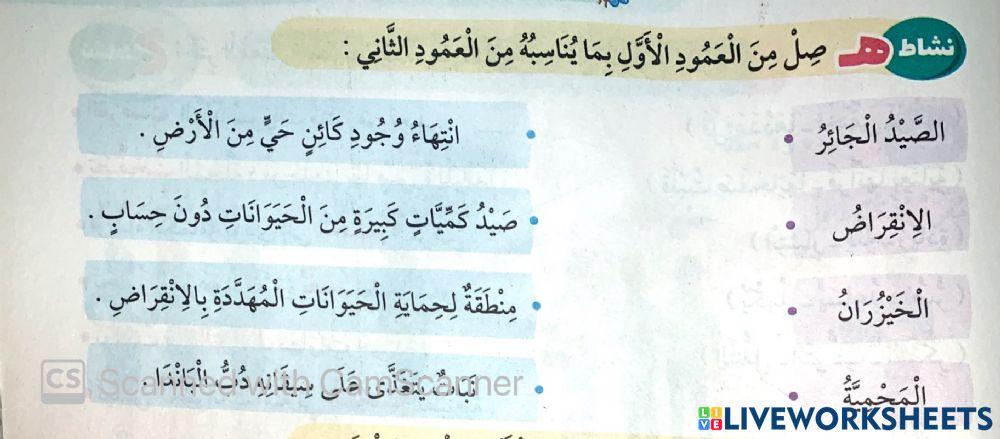 نشاط هـ صِلْ مِنَ الْعَمُودِ الْأَوَّلِ بِمَا يُنَاسِبُهُ مِنَ الْعَمُودِ الثَّانِي :
الصَّيْدُ الْجَائِرُ • • انْتِهَاءُ وُجُودِ كَائِنٍ حَيٍّ مِنَ الْأَرْضِ .
الِانْقِرَاضُ • • صَيْدُ كَمِّيَّاتٍ كَبِيرَةٍ مِنَ الْحَيَوَانَاتِ دُونَ حِسَابٍ .
الْخَيْزُرَانُ • • مِنْطَقَةٌ لِحِمَايَةِ الْحَيَوَانَاتِ الْمُهَدَّدَةِ بِالِانْقِرَاضِ .
الْمَحْمِيَّةُ • • نَبَاتٌ يَتَغَذَّى عَلَى سِيقَانِهِ دُبُّ الْبَانْدَا .
CS Scanned with CamScanner
LIVEWORKSHEETS